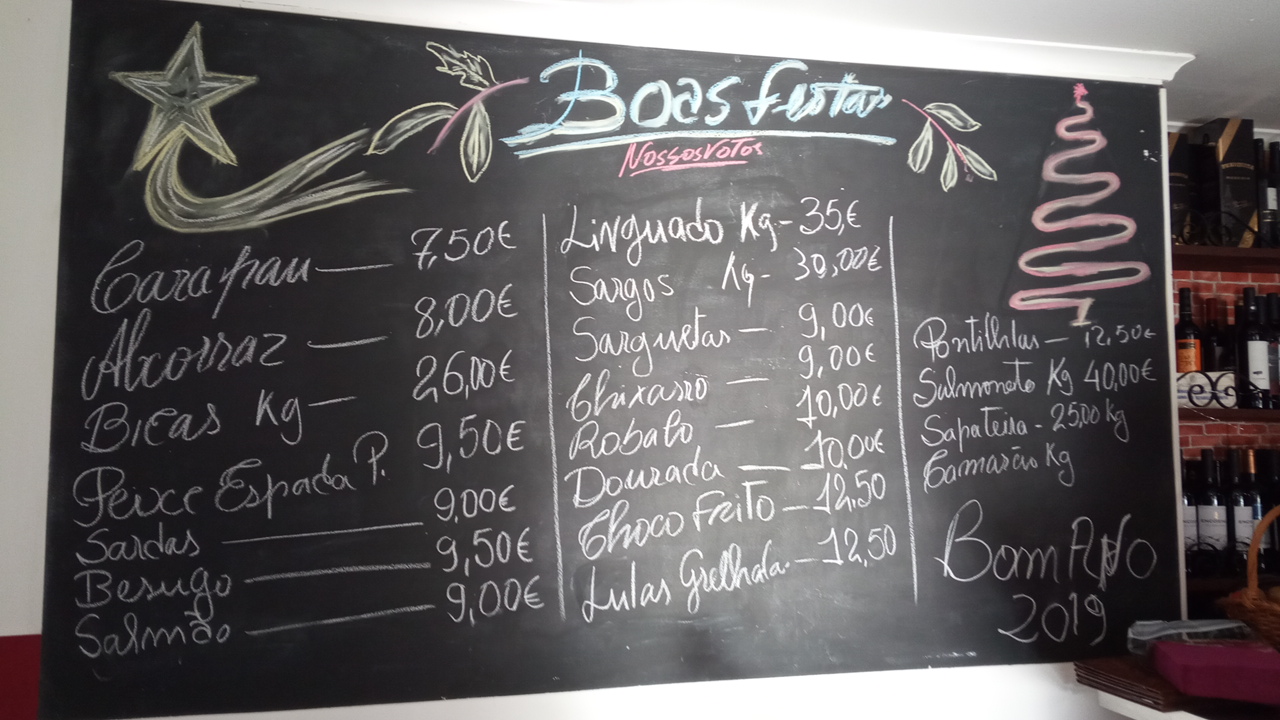 Boas Festas
Nossos votos
Carapau — 7,50€
Alcorraz — 8,00€
Bicas Kg — 26,00€
Peixe Espada P. 9,50€
Sardas — 9,00€
Besugo — 9,50€
Salmão — 9,00€
Linguado Kg - 35,€
Sargos Kg - 30,00€
Sarguetas — 9,00€
Chixarro — 9,00€
Robalo — 10,00€
Dourada — 10,00€
Choco Frito — 12,50
Lulas Grelhada. — 12,50
Pontilhlas — 12,50€
Salmonete Kg 40,00€
Sapateira - 25,00 kg
Camarão Kg
Bom Ano
2019